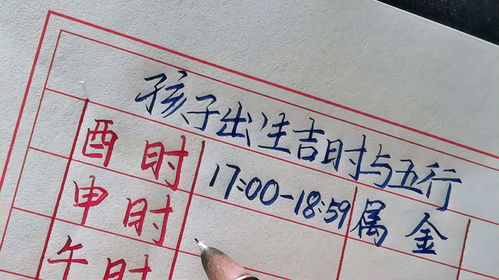 孩子出生吉时与五行
酉时 17:00-18:59 属金
申时
午时